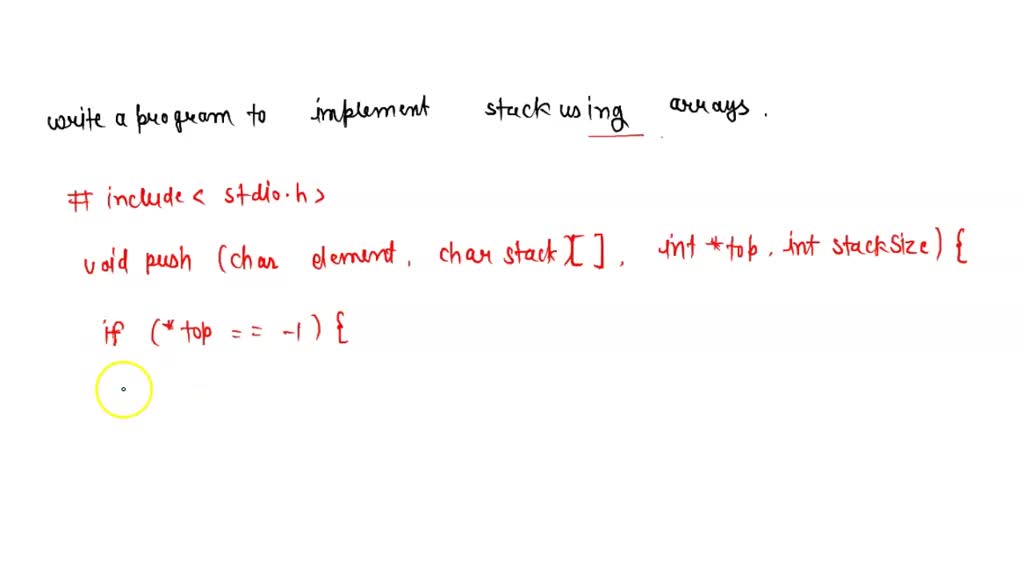 write a program to implement stack using arrays.
# include < stdio.h>
void push (char element, char stack[], int *top, int stackSize) {
if (*top == -1) {